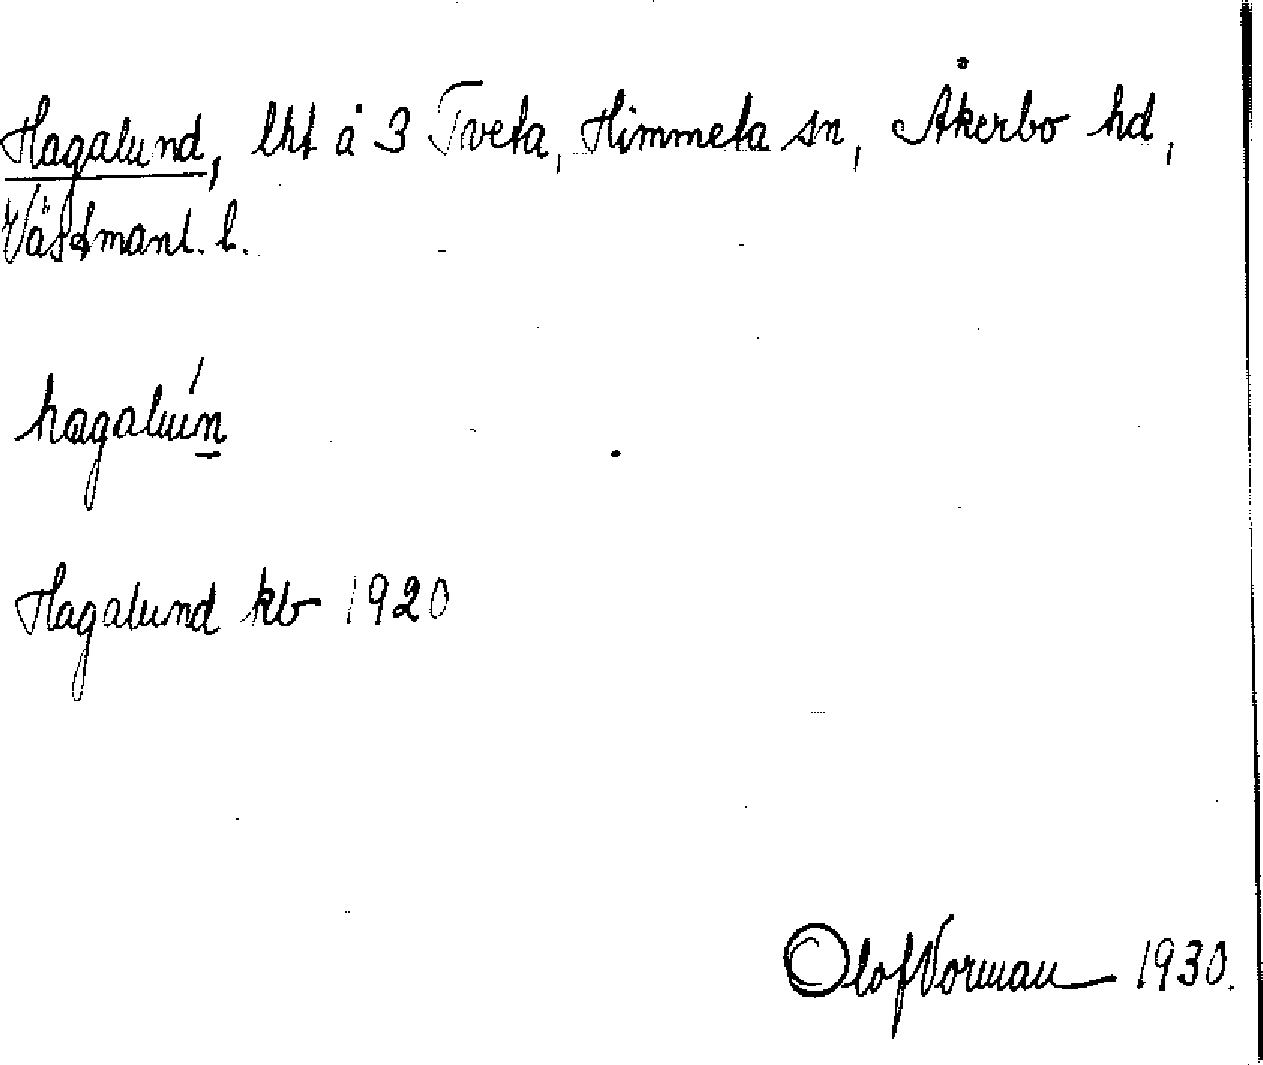 Hagalund, lht å 3 Tveta, Himmeta sn, Åkerbo hd,
Västmanl. l.
hagalún
Hagalund kb 1920
Olof Norman 1930.